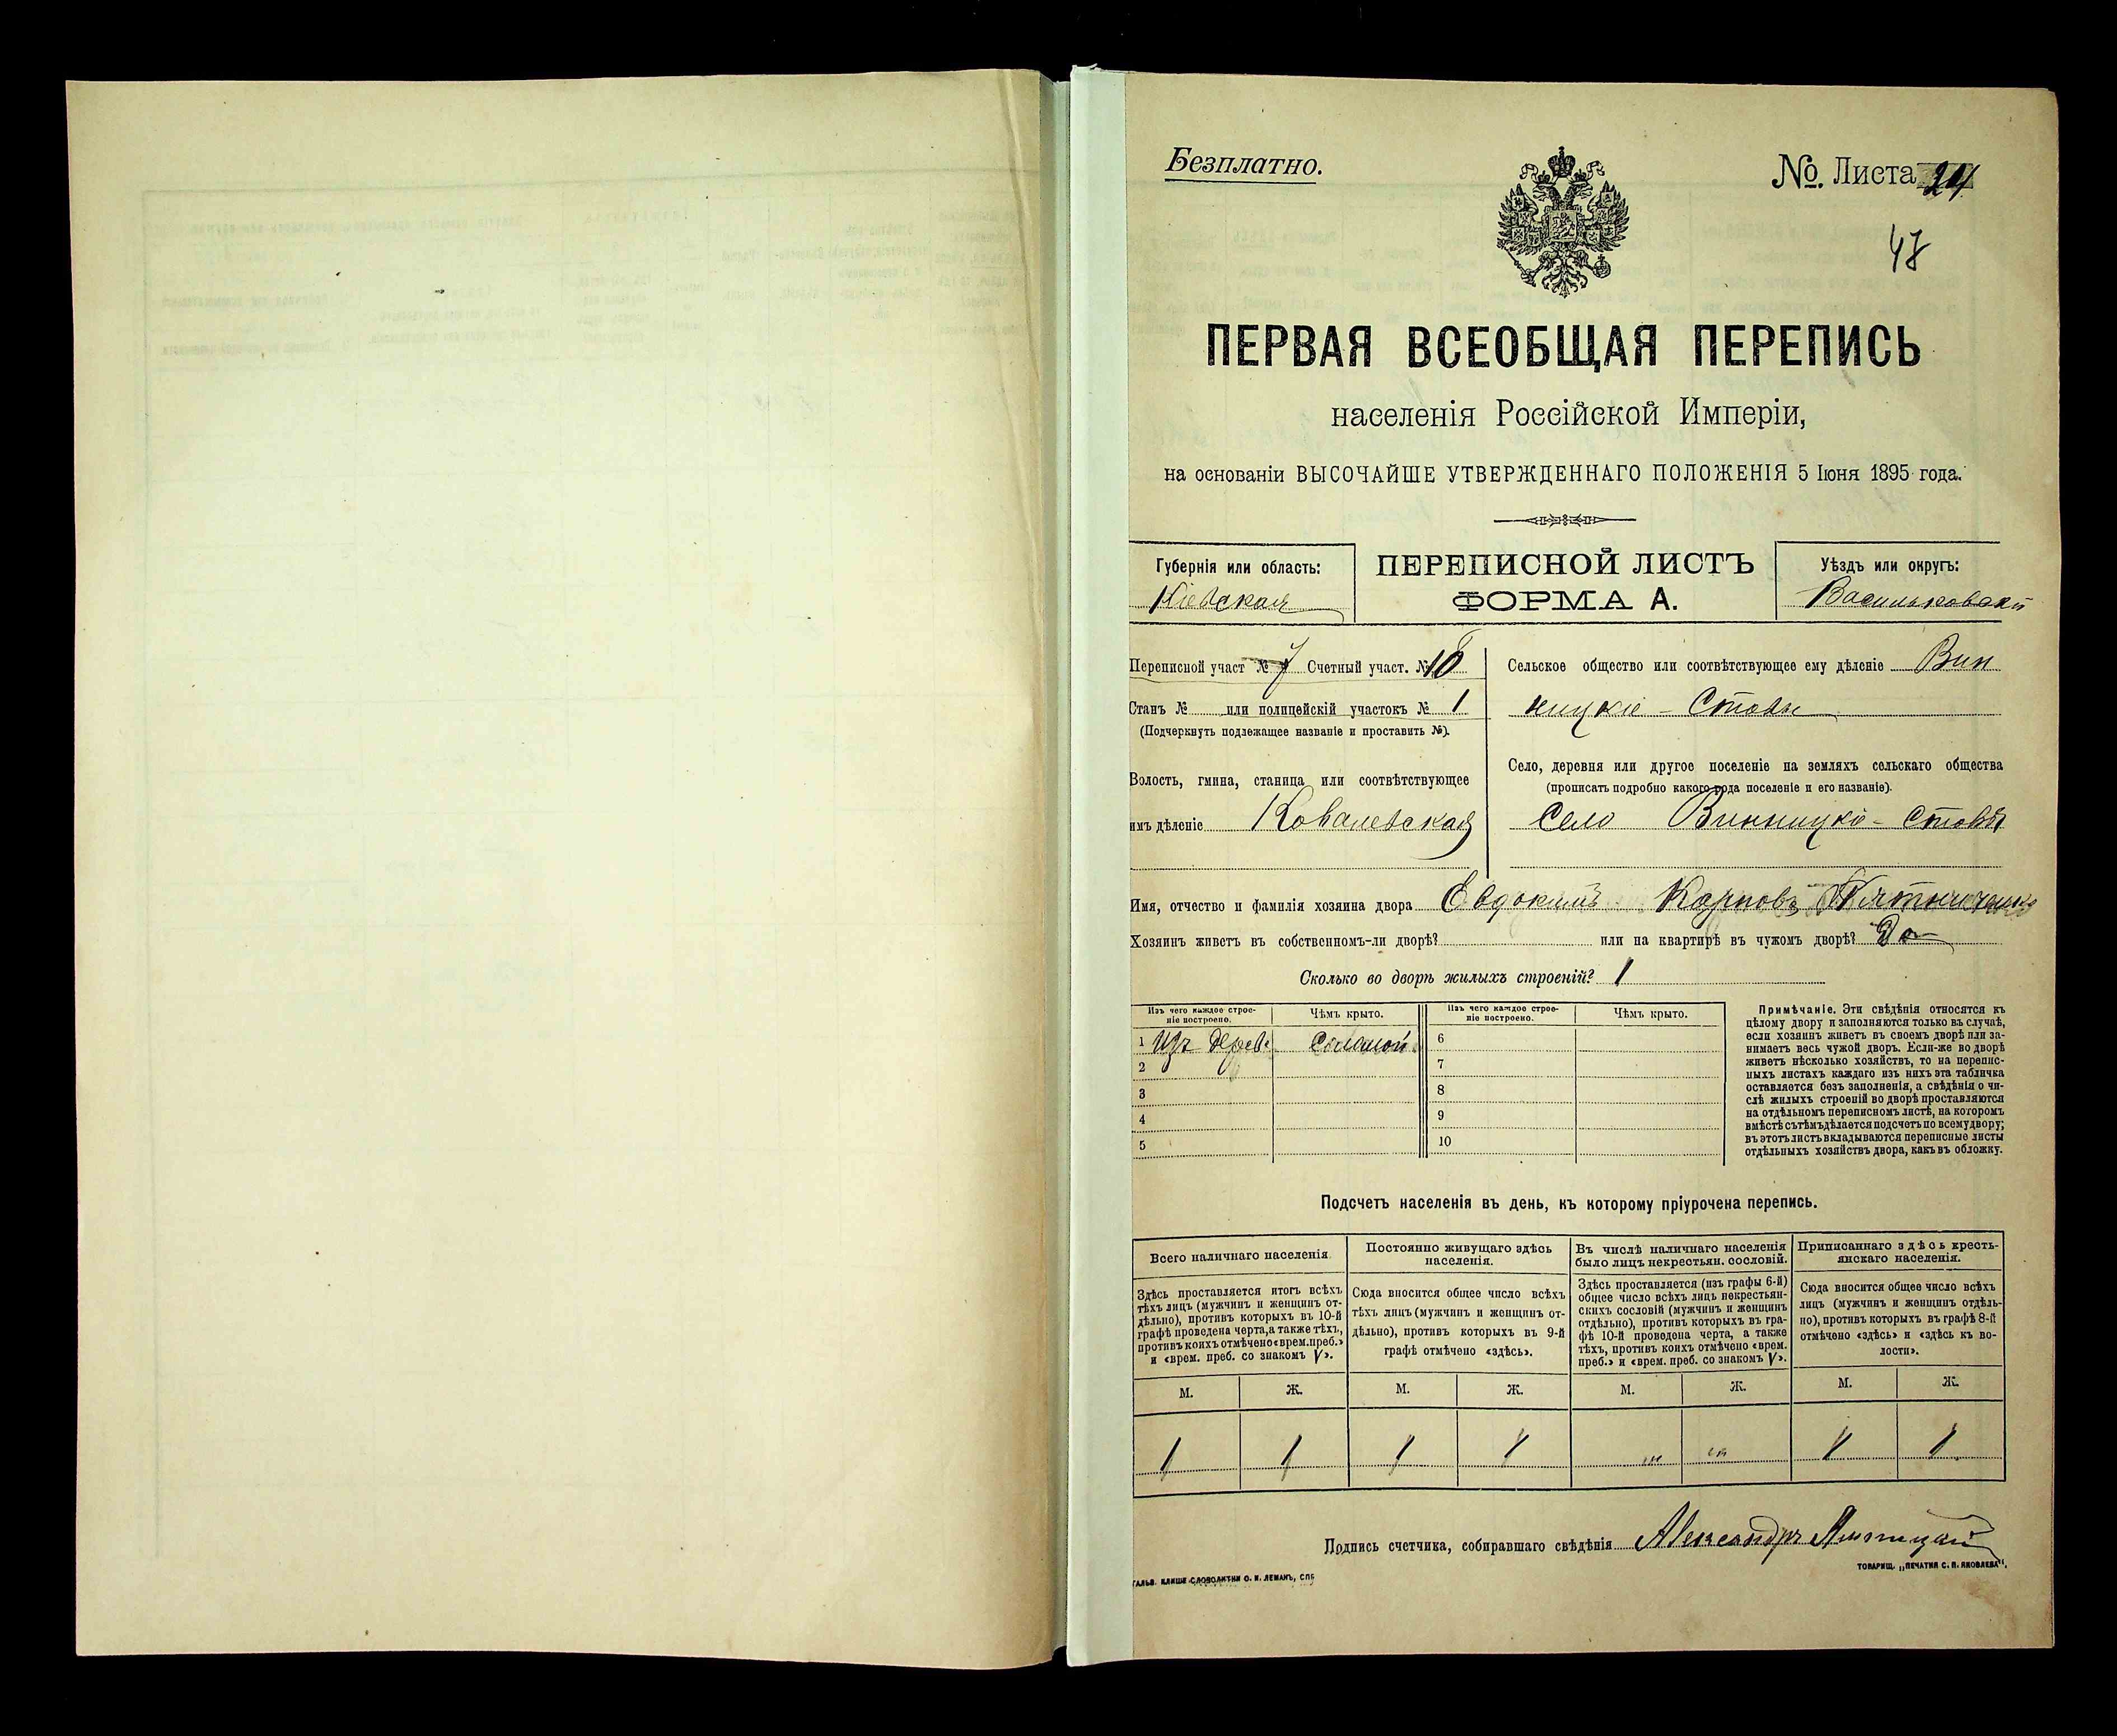 Безплатно.
№. Листа 24
47
ПЕРВАЯ ВСЕОБЩАЯ ПЕРЕПИСЬ
населенія Россійской Имперіи,
на основаніи ВЫСОЧАЙШЕ УТВЕРЖДЕННАГО ПОЛОЖЕНІЯ 5 Іюня 1895 года.
Губернія или область:
Кіевская
ПЕРЕПИСНОЙ ЛИСТЪ
ФОРМА А.
Уѣздъ или округъ:
Васильковскій
Переписной участ № 7 Счетный участ. № 10
Станъ № или полицейскій участокъ № 1
(Подчеркнуть подлежащее названіе и проставить №).
Волость, гмина, станица или соотвѣтствующее
имъ дѣленіе Ковалевская
Сельское общество или соотвѣтствующее ему дѣленіе Вин
ницкіе - Ставы
Село, деревня или другое поселеніе на земляхъ сельскаго общества
(прописать подробно какого рода поселеніе и его названіе).
Село Винницкіе - Ставы
Имя, отчество и фамилія хозяина двора Евдокимъ Карповъ
Хозяинъ живетъ въ собственномъ-ли дворѣ? или на квартирѣ въ чужомъ дворѣ? Да
Сколько во дворѣ жилыхъ строеній? 1
Изъ чего каждое строе-
ніе построено.
Чѣмъ крыто.
Изъ чего каждое строе-
ніе построено.
Чѣмъ крыто.
1 Изъ дерев. Соломой 6
2 7
3 8
4 9
5 10
Примѣчаніе. Эти свѣдѣнія относятся къ
цѣлому двору и заполняются только въ случаѣ,
если хозяинъ живетъ въ своемъ дворѣ или за-
нимаетъ весь чужой дворъ. Если-же во дворѣ
живетъ нѣсколько хозяйствъ, то на перепис-
ныхъ листахъ каждаго изъ нихъ эта табличка
оставляется безъ заполненія, а свѣдѣнія о чи-
слѣ жилыхъ строеній во дворѣ проставляются
на отдѣльномъ переписномъ листѣ, на которомъ
вмѣстѣ съ тѣмъ дѣлается подсчетъ по всему двору;
въ этотъ листъ вкладываются переписные листы
отдѣльныхъ хозяйствъ двора, какъ въ обложку.
Подсчетъ населенія въ день, къ которому пріурочена перепись.
Всего наличнаго населенія
Здѣсь проставляется итогъ всѣхъ
тѣхъ лицъ (мужчинъ и женщинъ от-
дѣльно), противъ которыхъ въ 10-й
графѣ проведена черта, а также тѣхъ,
противъ коихъ отмѣчено «врем. преб.»
и «врем. преб. со знакомъ V».
Постоянно живущаго здѣсь
населенія.
Сюда вносится общее число всѣхъ
тѣхъ лицъ (мужчинъ и женщинъ от-
дѣльно), противъ которыхъ въ 9-й
графѣ отмѣчено «здѣсь».
Въ числѣ наличнаго населенія
было лицъ некрестьян. сословій.
Здѣсь проставляется (изъ графы 6-й)
общее число всѣхъ лицъ некрестьян-
скихъ сословій (мужчинъ и женщинъ
отдѣльно), противъ которыхъ въ гра-
фѣ 10-й проведена черта, а также
тѣхъ, противъ коихъ отмѣчено «врем.
преб.» и «врем. преб. со знакомъ V».
Приписаннаго здѣсь кресть-
янскаго населенія.
Сюда вносится общее число всѣхъ
лицъ (мужчинъ и женщинъ отдѣль-
но), противъ которыхъ въ графѣ 8-й
отмѣчено «здѣсь» и «здѣсь къ во-
лости».
М. Ж. М. Ж. М. Ж. М. Ж.
1 1 1 1 „ „ 1 1
Подпись счетчика, собиравшаго свѣдѣнія Александръ
ГАЛЬВ. КЛИШЕ СЛОВОЛИТНИ О. И. ЛЕМАНЪ, СПБ
ТОВАРИЩ. „ПЕЧАТНЯ С. П. ЯКОВЛЕВА".